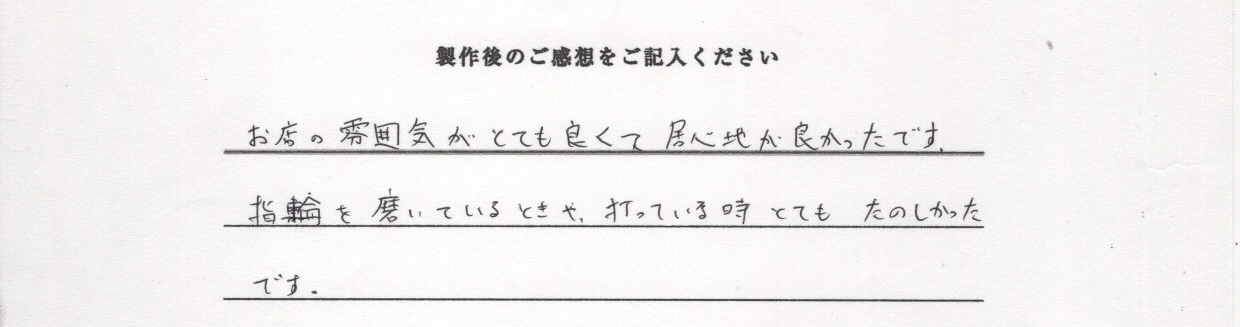 製作後のご感想をご記入ください
お店の雰囲気がとても良くて居心地が良かったです。
指輪を磨いているときや、打っている時とても たのしかった
です。